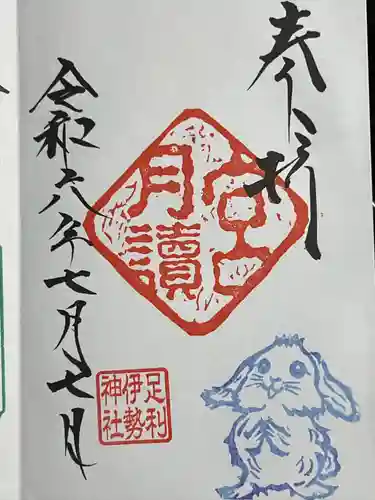 奉拝
月讀宮
令和六年七月七日
足利伊勢神社